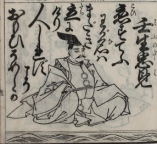 壬生忠見
恋すてふ
わか名は
またき
立に
けり
人しれす
こそ
おもひそめしか